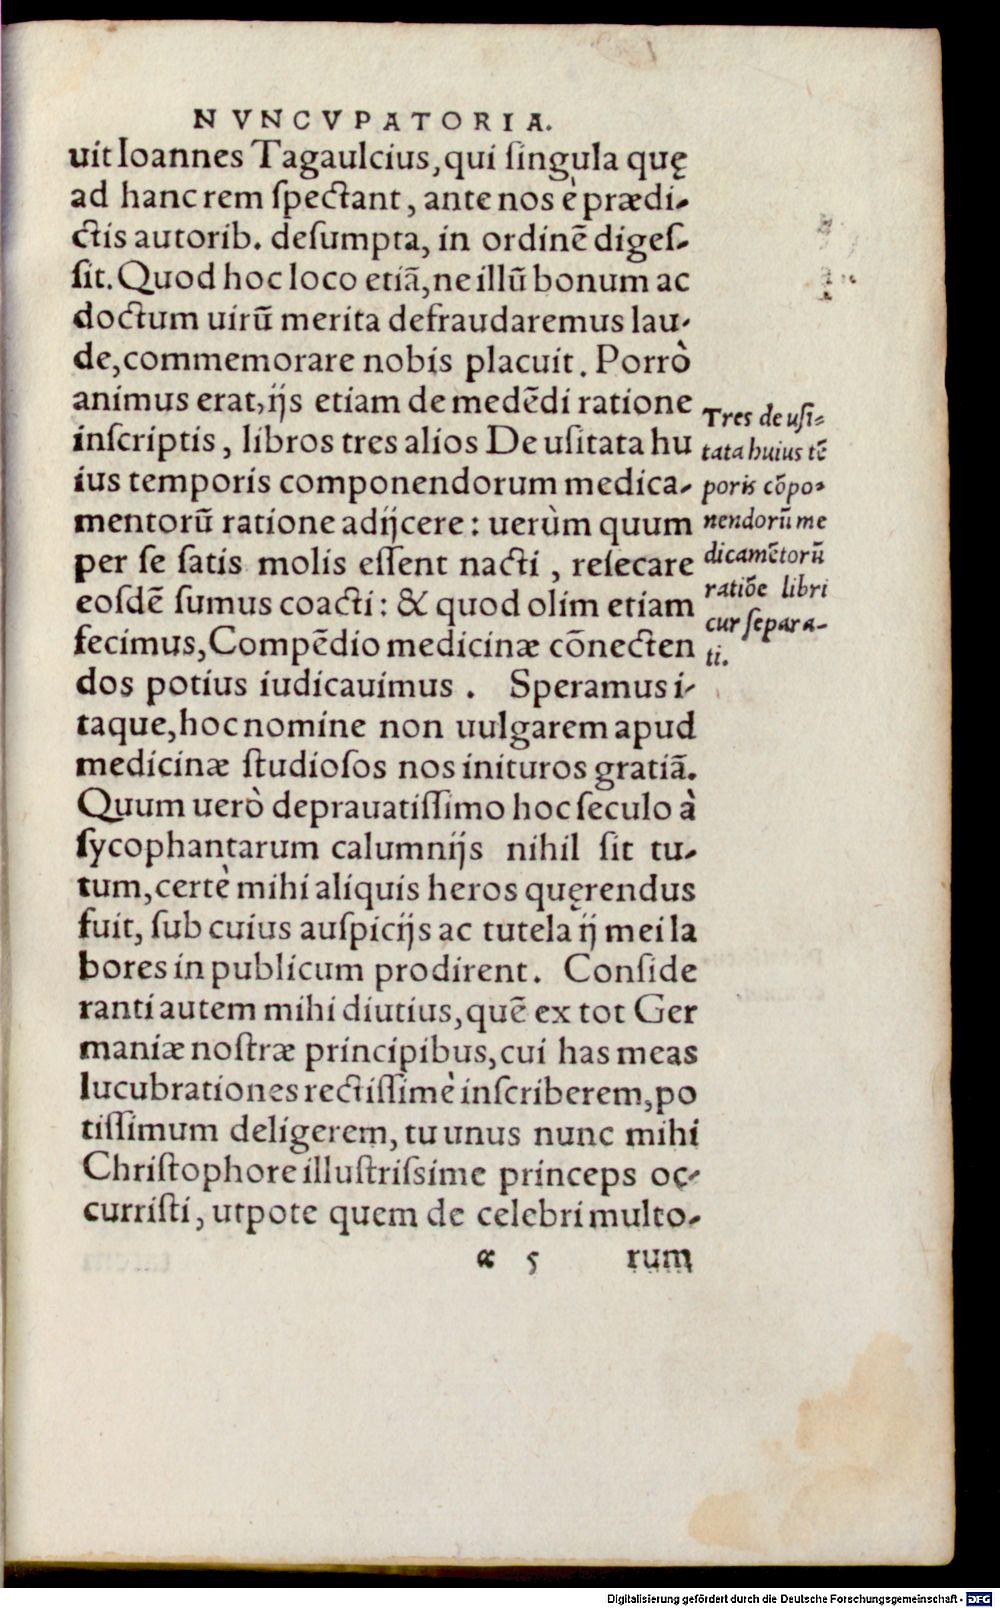 NVNCVPATORIA.
uit Ioannes Tagaulcius, qui ſingula quę
ad hanc rem ſpectant, ante nos è prædi-
ctis autorib. deſumpta, in ordinē digeſ-
ſit. Quod hoc loco etiā, ne illū bonum ac
doctum uirū merita defraudaremus lau-
de, commemorare nobis placuit. Porrò
animus erat, ijs etiam de medēdi ratione
inſcriptis, libros tres alios De uſitata hu
ius temporis componendorum medica-
mentorū ratione adijcere: uerùm quum
per ſe ſatis molis eſſent nacti, reſecare
eoſdē ſumus coacti: & quod olim etiam
fecimus, Compēdio medicinæ cōnecten
dos potius iudicauimus. Speramus i-
taque, hoc nomine non uulgarem apud
medicinæ ſtudioſos nos inituros gratiā.
Quum uerò deprauatiſſimo hoc ſeculo à
ſycophantarum calumnijs nihil ſit tu-
tum, certè mihi aliquis heros quęrendus
fuit, ſub cuius auſpicijs ac tutela ij mei la
bores in publicum prodirent. Conſide
ranti autem mihi diutius, quē ex tot Ger
maniæ noſtræ principibus, cui has meas
lucubrationes rectiſſimè inſcriberem, po
tiſſimum deligerem, tu unus nunc mihi
Chriſtophore illuſtriſsime princeps oc-
curriſti, utpote quem de celebri multo-
α 5 rum
Tres de uſi-
tata huius tē
poris cōpo-
nendorū me
dicamētorū
ratiōe libri
cur ſepara-
ti.
Digitalisierung gefördert durch die Deutsche Forschungsgemeinschaft - DFG